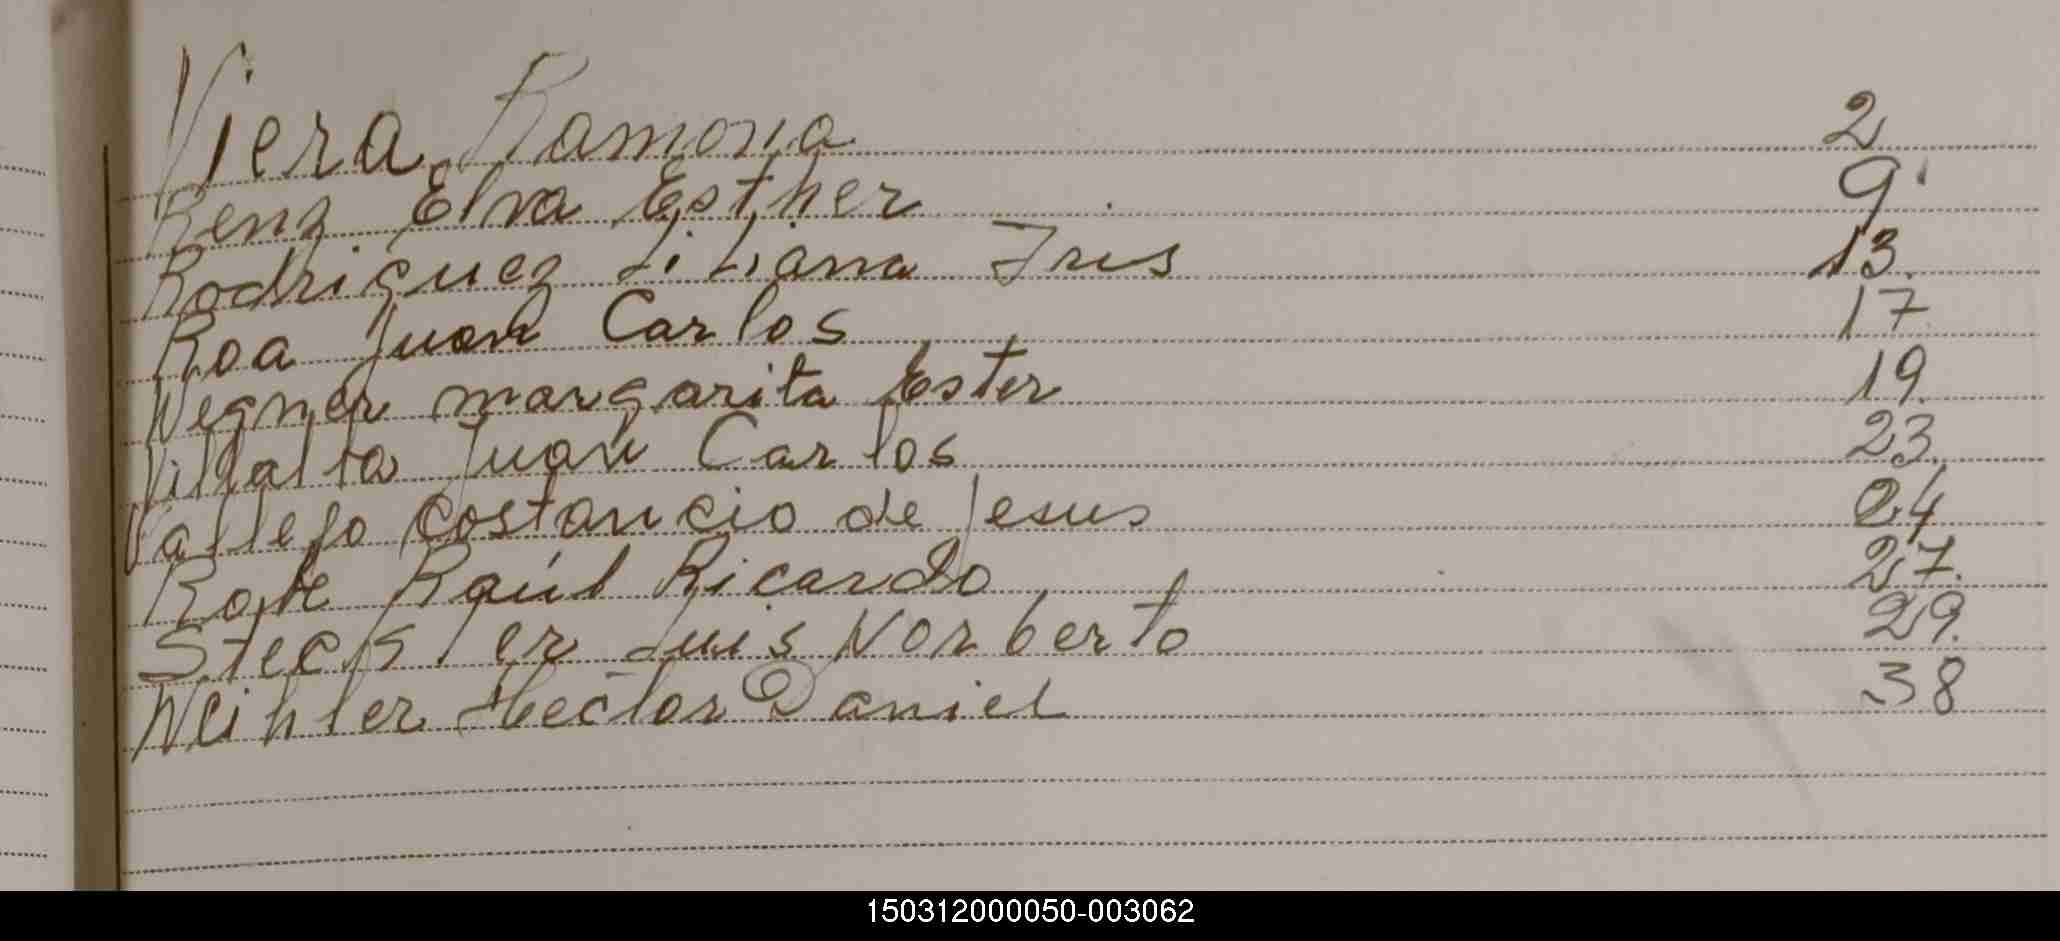 Viera Ramona 2
Renz Elva Esther 9
Rodriguez Liliana Iris 13
Roa Juan Carlos 17
Wegner margarita Ester 19
Villalta Juan Carlos 23
Vallejo Costancio de Jesus 24
Raúl Ricardo 27
Steckler Luis Norberto 29
Weihler Hector Daniel 38
150312000050-003062